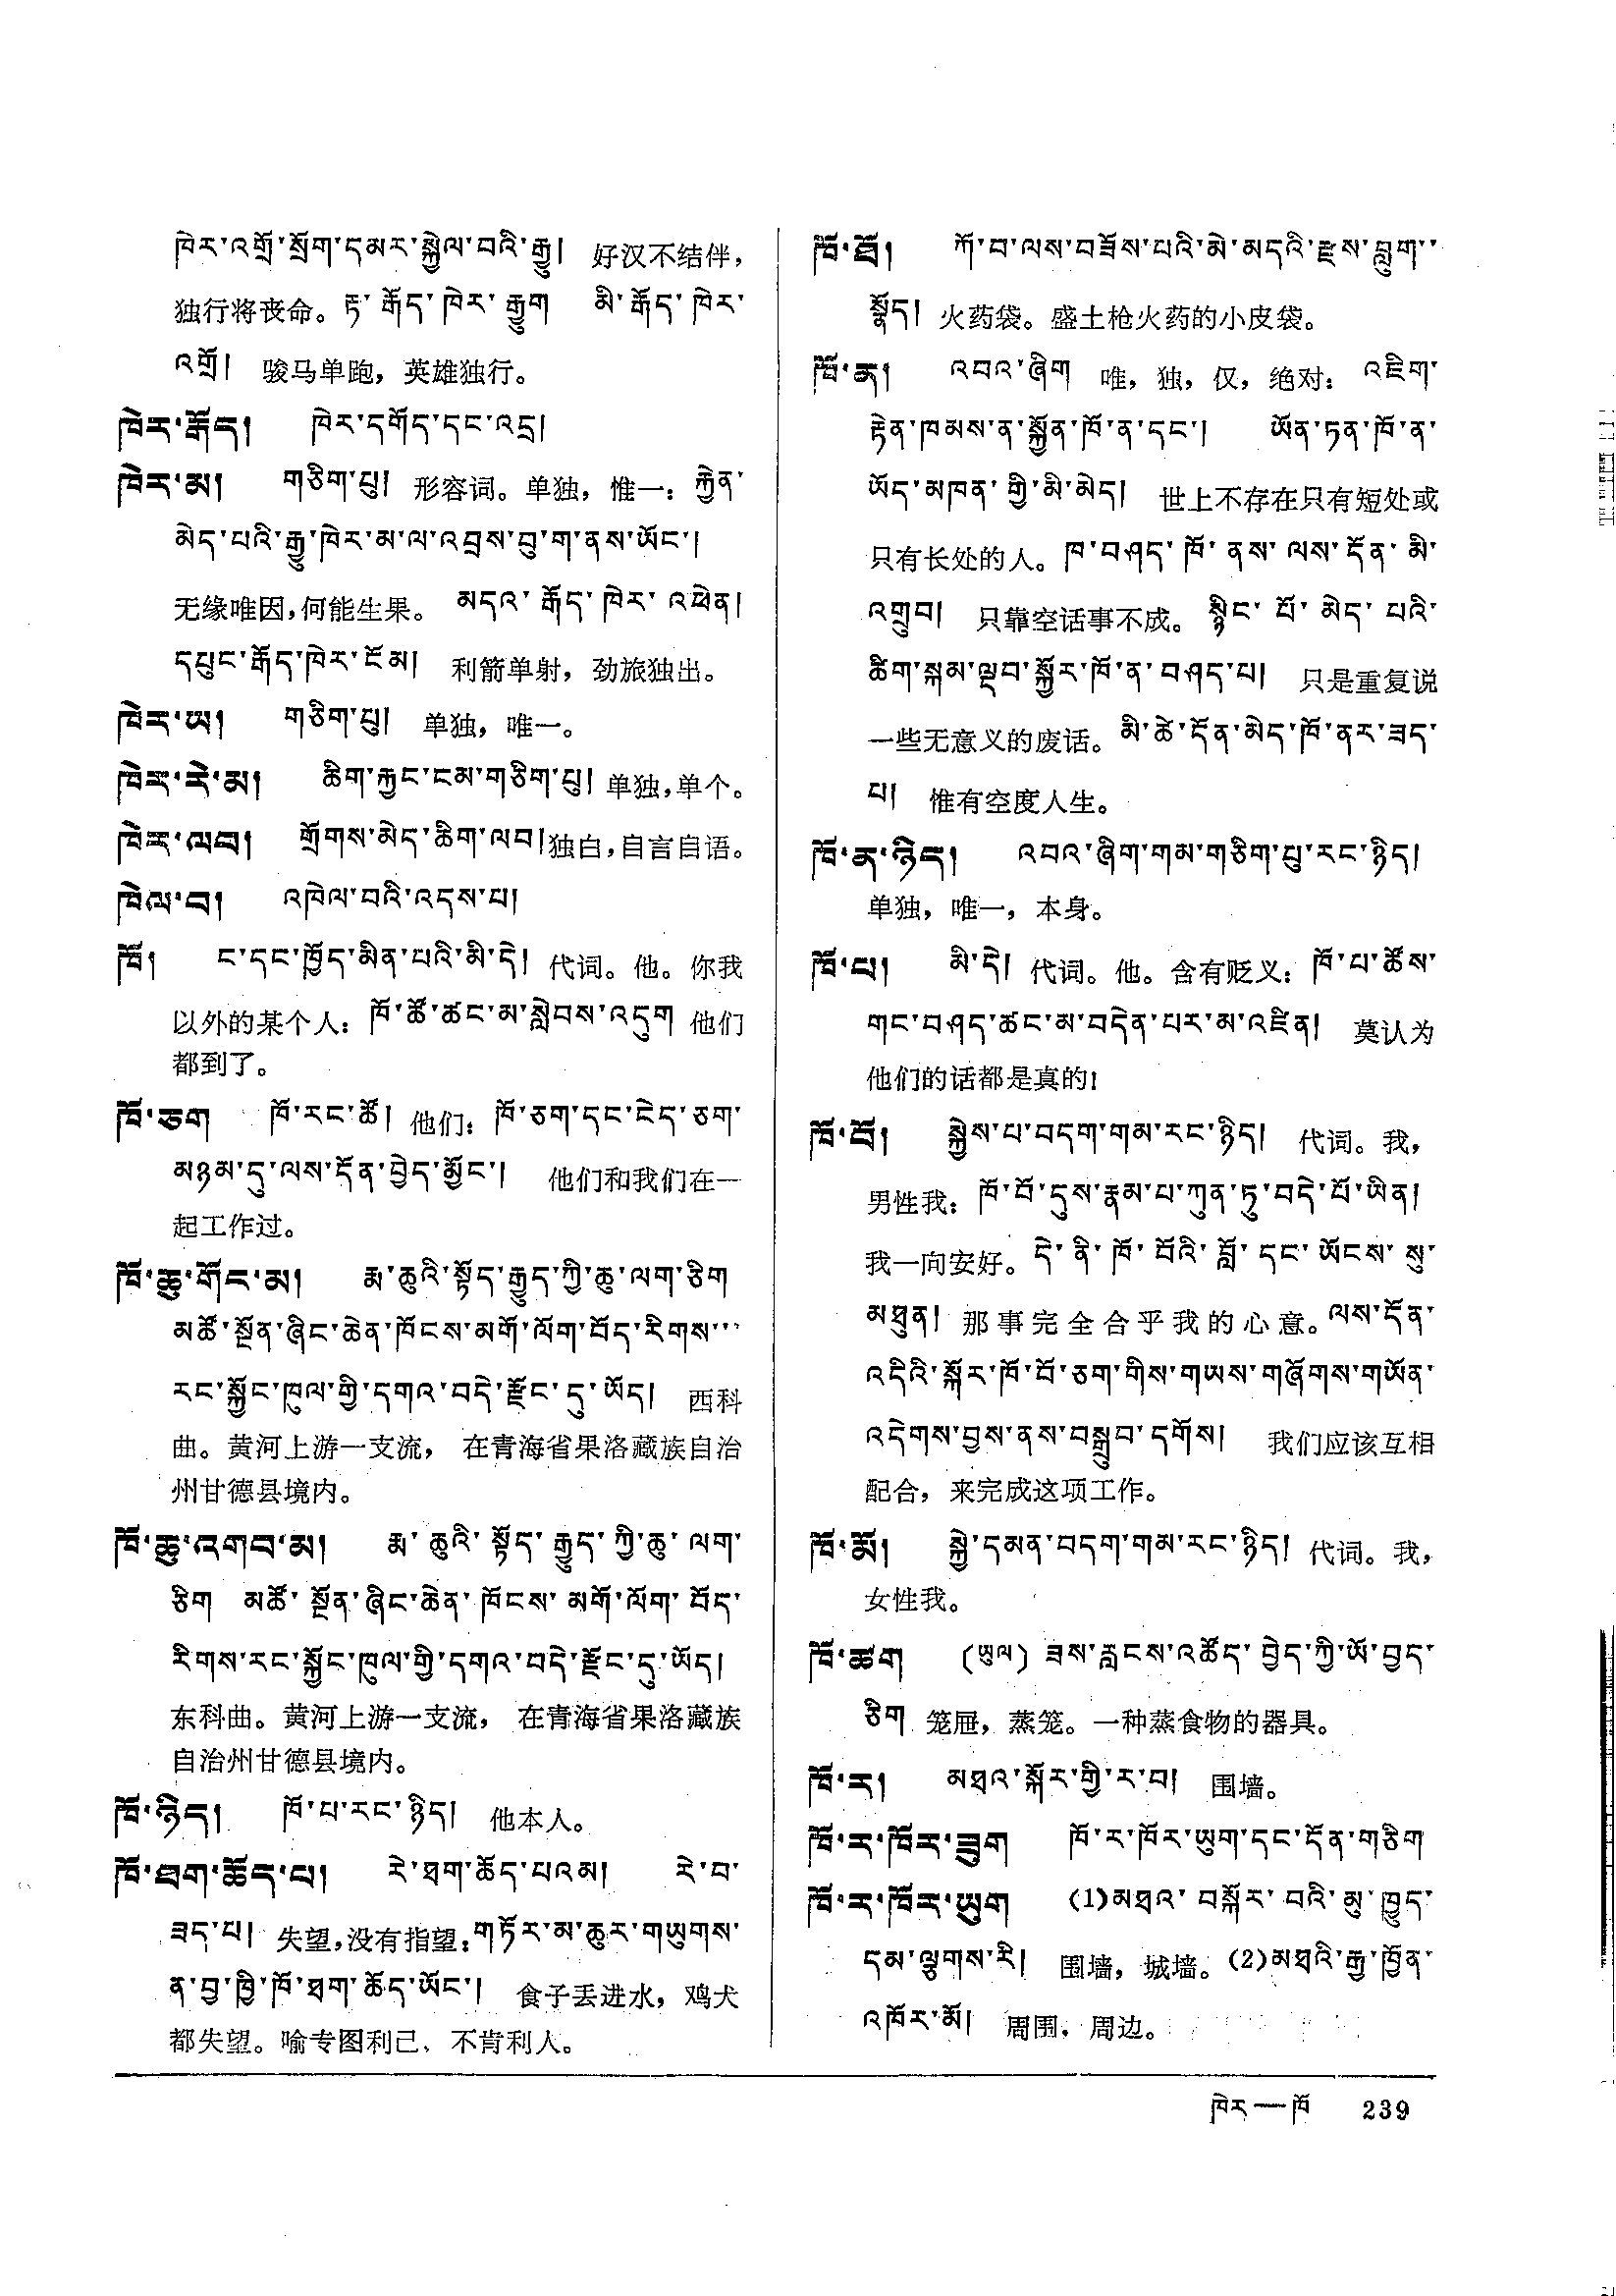 ཁེར་འགྲོ་སྲོག་དམར་སྐྱེལ་བའི་རྒྱུ། 好汉不结伴，
独行将丧命。རྟ་ རྒོད་ ཁེར་ རྒྱུག མི་རྒོད་ ཁེར་
འགྲོ། 骏马单跑，英雄独行。
ཁེར་རྒོད། ཁེར་དགོད་དང་འདྲ།
ཁེར་མ། གཅིག་པུ། 形容词。单独，惟一：རྐྱེན་
མེད་པའི་རྒྱུ་ཁེར་མ་ལ་འབྲས་བུ་ག་ནས་ཡོང་།
无缘唯因，何能生果。 མདའ་ རྒོད་ ཁེར་ འཕེན།
དཔུང་རྒོད་ཁེར་ངོམ། 利箭单射，劲旅独出。
ཁེར་ཡ། གཅིག་པུ། 单独，唯一。
ཁེར་རེ་མ། ཆིག་རྐྱང་ངམ་གཅིག་པུ། 单独，单个。
ཁེར་ལབ། གྲོགས་མེད་ཆིག་ལབ། 独白，自言自语。
ཁེལ་བ། འཁེལ་བའི་འདས་པ།
ཁོ། ང་དང་ཁྱོད་མིན་པའི་མི་དེ། 代词。他。你我
以外的某个人：ཁོ་ཚོ་ཚང་མ་སླེབས་འདུག 他们
都到了。
ཁོ་ཅག ཁོ་རང་ཚོ། 他们：ཁོ་ཅག་དང་ངེད་ཅག་
མཉམ་དུ་ལས་དོན་བྱེད་མྱོང་། 他们和我们在一
起工作过。
ཁོ་ཆུ་གོང་མ། རྨ་ཆུའི་སྟོད་རྒྱུད་ཀྱི་ཆུ་ལག་ཅིག
མཚོ་སྔོན་ཞིང་ཆེན་ཁོངས་མགོ་ལོག་བོད་རིགས་
རང་སྐྱོང་ཁུལ་གྱི་དགའ་བདེ་རྫོང་དུ་ཡོད། 西科
曲。黄河上游一支流， 在青海省果洛藏族自治
州甘德县境内。
ཁོ་ཆུ་འགབ་མ། རྨ་ ཆུའི་ སྟོད་ རྒྱུད་ ཀྱི་ཆུ་ ལག་
ཅིག མཚོ་ སྔོན་ཞིང་ཆེན་ ཁོངས་ མགོ་ལོག་ བོད་
རིགས་རང་སྐྱོང་ཁུལ་གྱི་དགའ་བདེ་རྫོང་དུ་ཡོད།
东科曲。黄河上游一支流， 在青海省果洛藏族
自治州甘德县境内。
ཁོ་ཉིད། ཁོ་པ་རང་ཉིད། 他本人。
ཁོ་ཐག་ཆོད་པ། རེ་ཐག་ཆོད་པའམ། རེ་བ་
ཟད་པ། 失望，没有指望：གཏོར་མ་ཆུར་གཡུགས་
ན་བྱ་ཁྱི་ཁོ་ཐག་ཆོད་ཡོང་། 食子丢进水，鸡犬
都失望。喻专图利己，不肯利人。
ཁོ་ཐོ། ཀོ་བ་ལས་བཟོས་པའི་མེ་མདའི་རྫས་བླུག་
སྣོད། 火药袋。盛土枪火药的小皮袋。
ཁོ་ན། འབའ་ཞིག 唯，独，仅，绝对： འཇིག་
རྟེན་ཁམས་ན་སྐྱོན་ཁོ་ན་དང་། ཡོན་ཏན་ཁོ་ན་
ཡོད་མཁན་ གྱི་མི་མེད། 世上不存在只有短处或
只有长处的人。ཁ་བཤད་ ཁོ་ ནས་ ལས་ དོན་ མི་
འགྲུབ། 只靠空话事不成。 སྙིང་ པོ་ མེད་ པའི་
ཚིག་སྐམ་ལྡབ་སྐྱོར་ཁོ་ན་བཤད་པ། 只是重复说
一些无意义的废话。མི་ཚེ་དོན་མེད་ཁོ་ནར་ཟད་
པ། 惟有空度人生。
ཁོ་ན་ཉིད། འབའ་ཞིག་གམ་གཅིག་པུ་རང་ཉིད།
单独，唯一，本身。
ཁོ་པ། མི་དེ། 代词。他。含有贬义：ཁོ་པ་ཚོས་
གང་བཤད་ཚང་མ་བདེན་པར་མ་འཛིན། 莫认为
他们的话都是真的！
ཁོ་བོ། སྐྱེས་པ་བདག་གམ་རང་ཉིད། 代词。我，
男性我：ཁོ་བོ་དུས་རྣམ་པ་ཀུན་ཏུ་བདེ་པོ་ཡིན།
我一向安好。དེ་ ནི་ ཁོ་ བོའི་ བློ་ དང་ ཡོངས་ སུ་
མཐུན། 那事完全合乎我的心意。ལས་དོན་
འདིའི་སྐོར་ཁོ་བོ་ཅག་གིས་གཡས་གཞོགས་གཡོན་
འདེགས་བྱས་ནས་བསྒྲུབ་དགོས། 我们应该互相
配合，来完成这项工作。
ཁོ་མོ། སྐྱེ་དམན་བདག་གམ་རང་ཉིད། 代词。我，
女性我。
ཁོ་ཚག (ཡུལ) ཟས་རླངས་འཚོད་ བྱེད་ཀྱི་ཡོ་བྱད་
ཅིག 笼屉，蒸笼。一种蒸食物的器具。
ཁོ་ར། མཐའ་སྐོར་གྱི་ར་བ། 围墙。
ཁོ་ར་ཁོར་ཟླུག ཁོ་ར་ཁོར་ཡུག་དང་དོན་གཅིག
ཁོ་ར་ཁོར་ཡུག (1)མཐའ་ བསྐོར་ བའི་ མུ་ ཁྱུད་
དམ་ལྕགས་རི། 围墙，城墙。(2)མཐའི་རྒྱ་ཁྱོན་
འཁོར་མོ། 周围，周边。
ཁེར—ཁོ 239